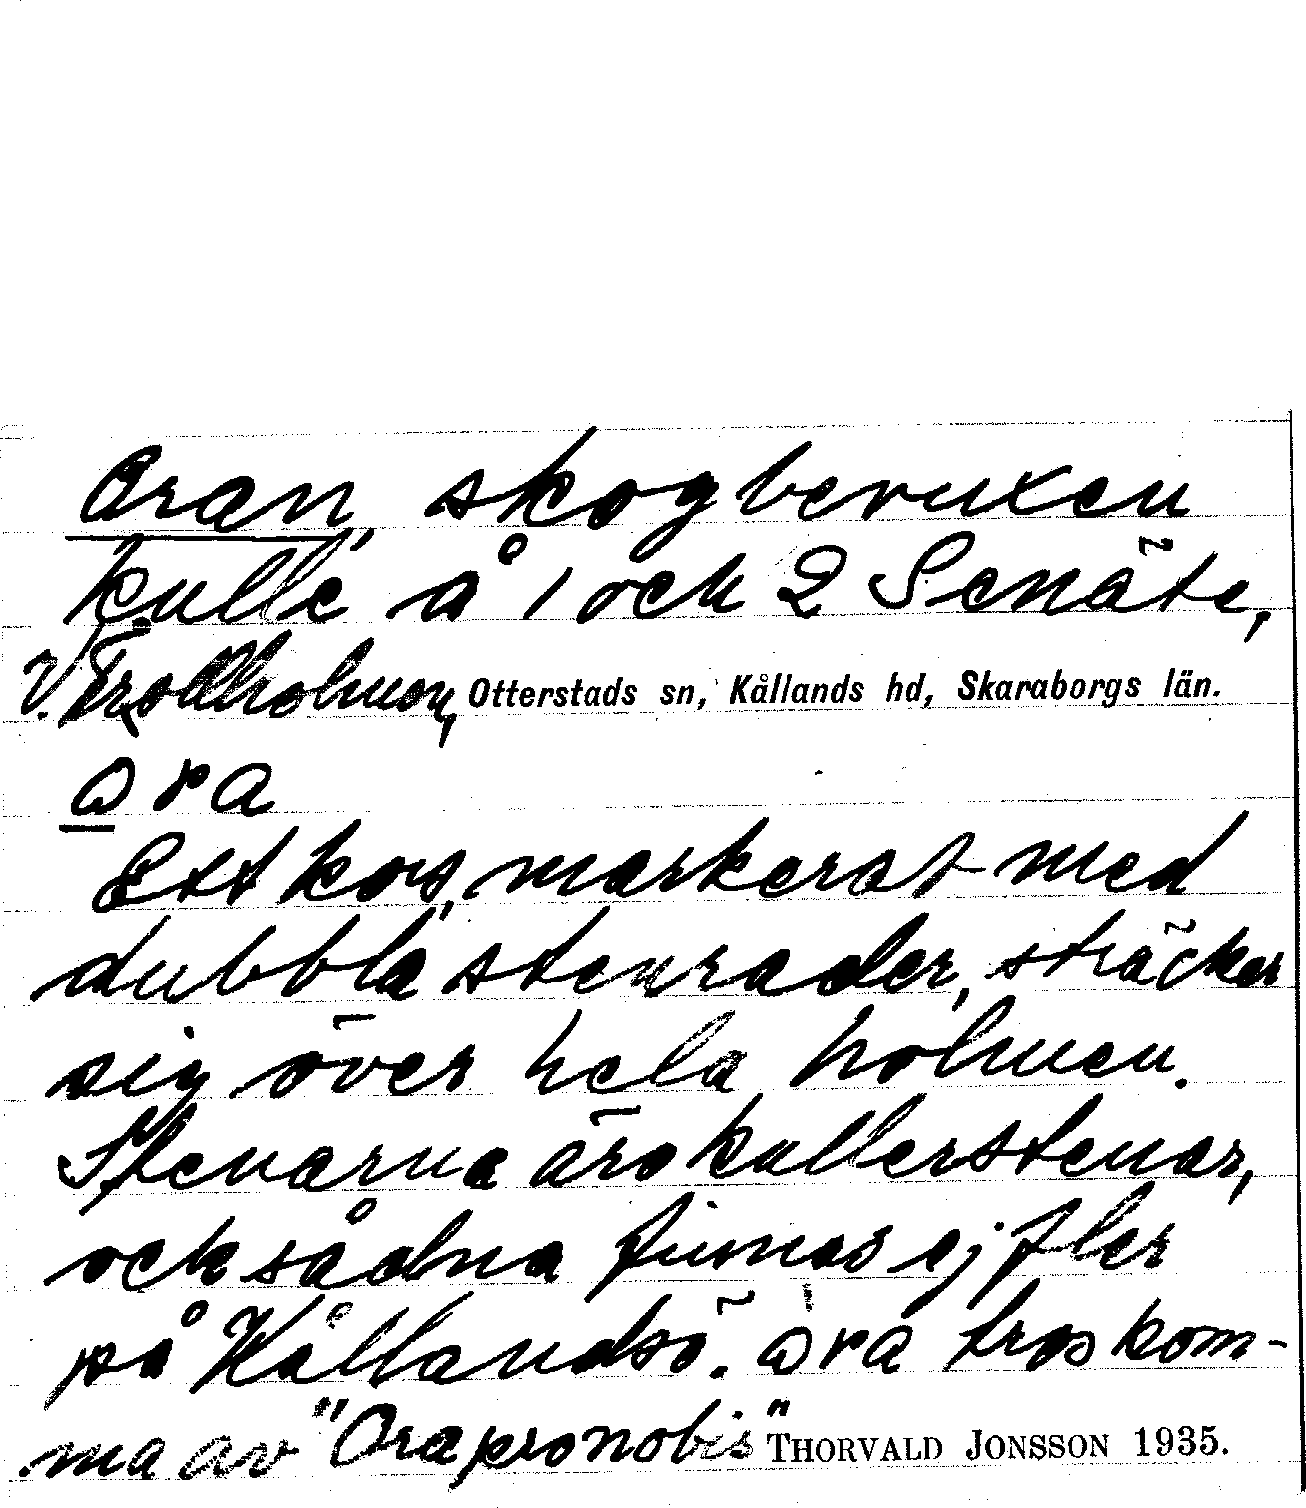 Oran, skogbevuxen
kulle å 1 och 2 Senäte,
V. Trollholmen, Otterstads sn, Kållands hd, Skaraborgs län.
ɷra
Ett kors, markerat med
dubbla stenrader, sträcker
sig över hela holmen.
Stenarna äro kullerstenar,
och sådna finnas ej fler
på Kållandsö. ɷ̀ra tros kom-
ma av "Ora pro nobis" THORVALD JONSSON 1935.